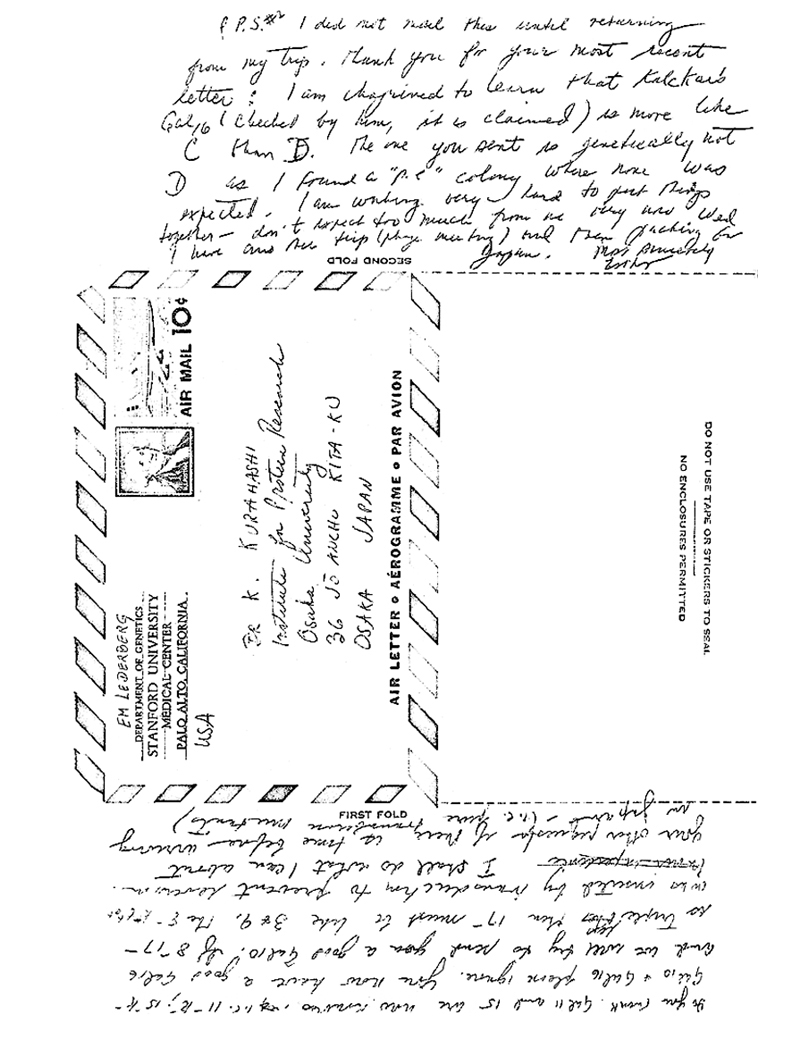 P.S. #2 I did not mail this until returning
from my trip. Thank you for your most recent
letter: I am chagrined to learn that Kalckar's
Gal16 (checked by him, it is claimed) is more like
C than D. The one you sent is genetically not
D as I found a "p.s" colony where none was
expected. I am working very hard to put things
together — don't expect too much from me
I have one trip (phage meeting) and then packing for
Japan. Most Sincerely
Esther
SECOND FOLD
AIR MAIL 10¢
EM LEDERBERG
DEPARTMENT OF GENETICS
STANFORD UNIVERSITY
MEDICAL CENTER
PALO ALTO, CALIFORNIA
USA
DR K. KURAHASHI
Institute for Protein Research
Osaka University
36 JŌ ANCHO KITA-KU
OSAKA JAPAN
AIR LETTER • AÉROGRAMME • PAR AVION
DO NOT USE TAPE OR STICKERS TO SEAL
NO ENCLOSURES PERMITTED
FIRST FOLD
do you think. Gal 11 and 15 are now known
Gal10 + Gal16 please ignore. You now have a good Gal16
and we will try to send you a good Gal10. If 8-17-
so triple then 17- must be like 3 & 9. The
was inserted by transduction to prevent
I shall do what I can about
your other requests if there is time before arriving
in Japan — (i.e. pure transduction mutants)